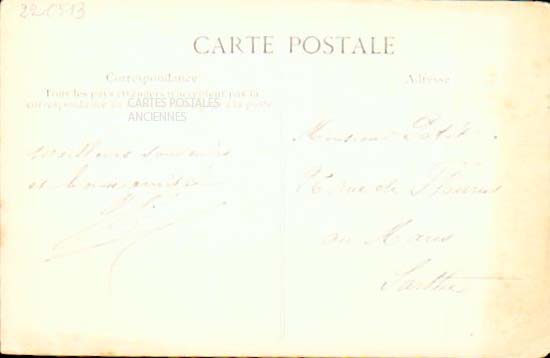 22.3.13
CARTE POSTALE
Correspondance
Adresse
Tous les pays étrangers n'acceptent pas la
correspondance au à la poste
CARTES POSTALES
ANCIENNES
Meilleurs souvenirs
et bonne amitié
Monsieur Petit
rue de
au Mans
Sarthe